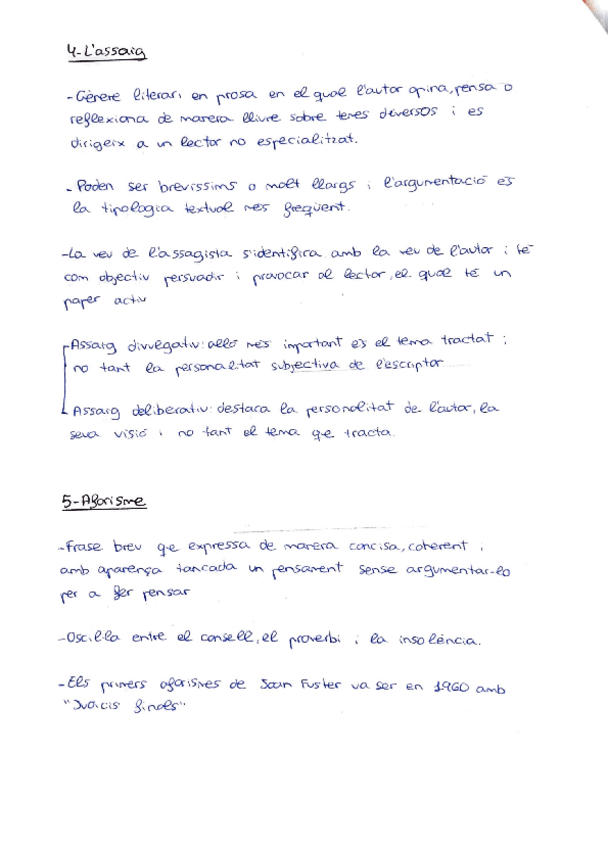 4-L'assaig
-Gènere literari en prosa en el qual l'autor opina, pensa o
reflexiona de manera lliure sobre temes diversos i es
dirigeix a un lector no especialitzat.
-Poden ser brevíssims o molt llargs i l'argumentació és
la tipologia textual més freqüent.
-La veu de l'assagista s'identifica amb la veu de l'autor i té
com objectiu persuadir i provocar al lector, el qual té un
paper actiu
-Assaig divulgatiu: allò més important és el tema tractat i
no tant la personalitat subjectiva de l'escriptor
-Assaig deliberatiu: destaca la personalitat de l'autor, la
seva visió i no tant el tema que tracta.
5-Aforisme
-Frase breu que expressa de manera concisa, coherent i
amb aparença tancada un pensament sense argumentar-lo
per a fer pensar
-Oscil·la entre el consell, el proverbi i la insolència.
-Els primers aforismes de Joan Fuster va ser en 1960 amb
"Judicis finals"